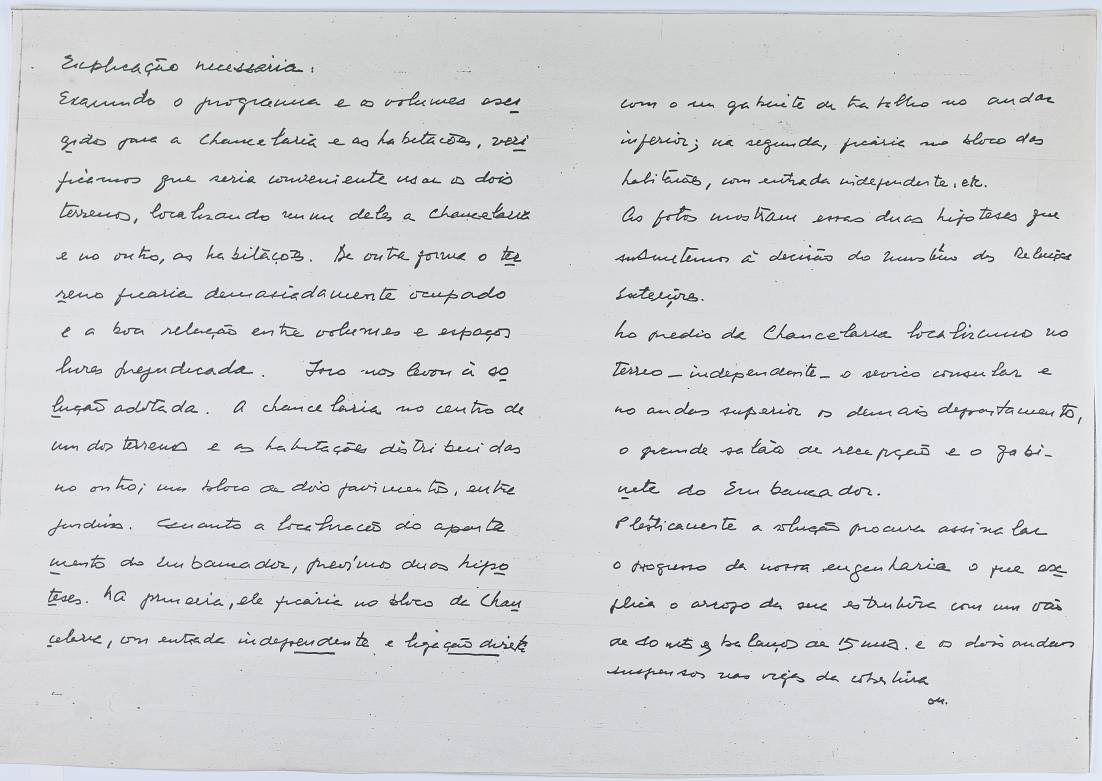 Explicação necessária:
Examinado o programma e os volumes exei
gidos para a Chancelaria e as habitacões, veri
ficamos que seria conveniente usar os dois
terrenos, localisando num deles a Chancelaria
e no outro, as habitações. De outra forma o ter
reno ficaria demasiadamente ocupado
e a boa relação entre volumes e espaços
livres prejudicada. Isso nos levou à so
lução adotada. A chancelaria no centro de
um dos terrenos e as habitações distribuidas
no outro; um bloco de dois pavimentos, entre
jardins. Quanto a localisação do aparta
mento do Embaixador, previmos duas hipo
teses. Na primeira, ele ficaria no bloco da Chan
celaria, com entrada independente e ligação direta
com o seu gabinete de trabalho no andar
inferior; na segunda, ficaria no bloco das
habitações, com entrada independente, etc.
As fotos mostram essas duas hipoteses que
submetemos à decisão do Ministério das Relações
Exteriores.
No predio da Chancelaria localisamos no
terreo - independente - o serviço consular e
no andar superior os demais departamentos,
o grande salão de recepção e o gabi-
nete do Embaixador.
Plásticamente a solução procura assinalar
o progresso da nossa engenharia o que ex
plica o arrojo da sua estrutura com um vão
de 40 mts e balanços de 15 mts. e os dois andares
suspensos nas vigas da cobertura
ON.